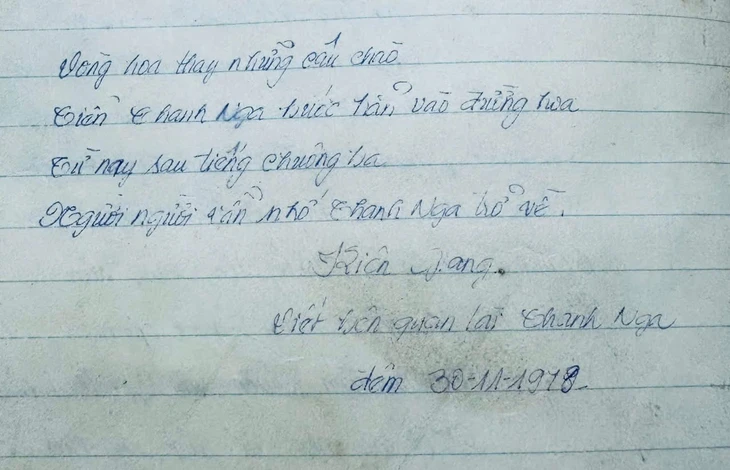 Vòng hoa thay những câu chào
Tiễn Thanh Nga bước hẳn vào trường hoa
Từ nay sau tiếng chuông ba
Người người vẫn nhớ Thanh Nga trở về.
Kiên Giang
Viết bên quan tài Thanh Nga
đêm 30-11-1978.